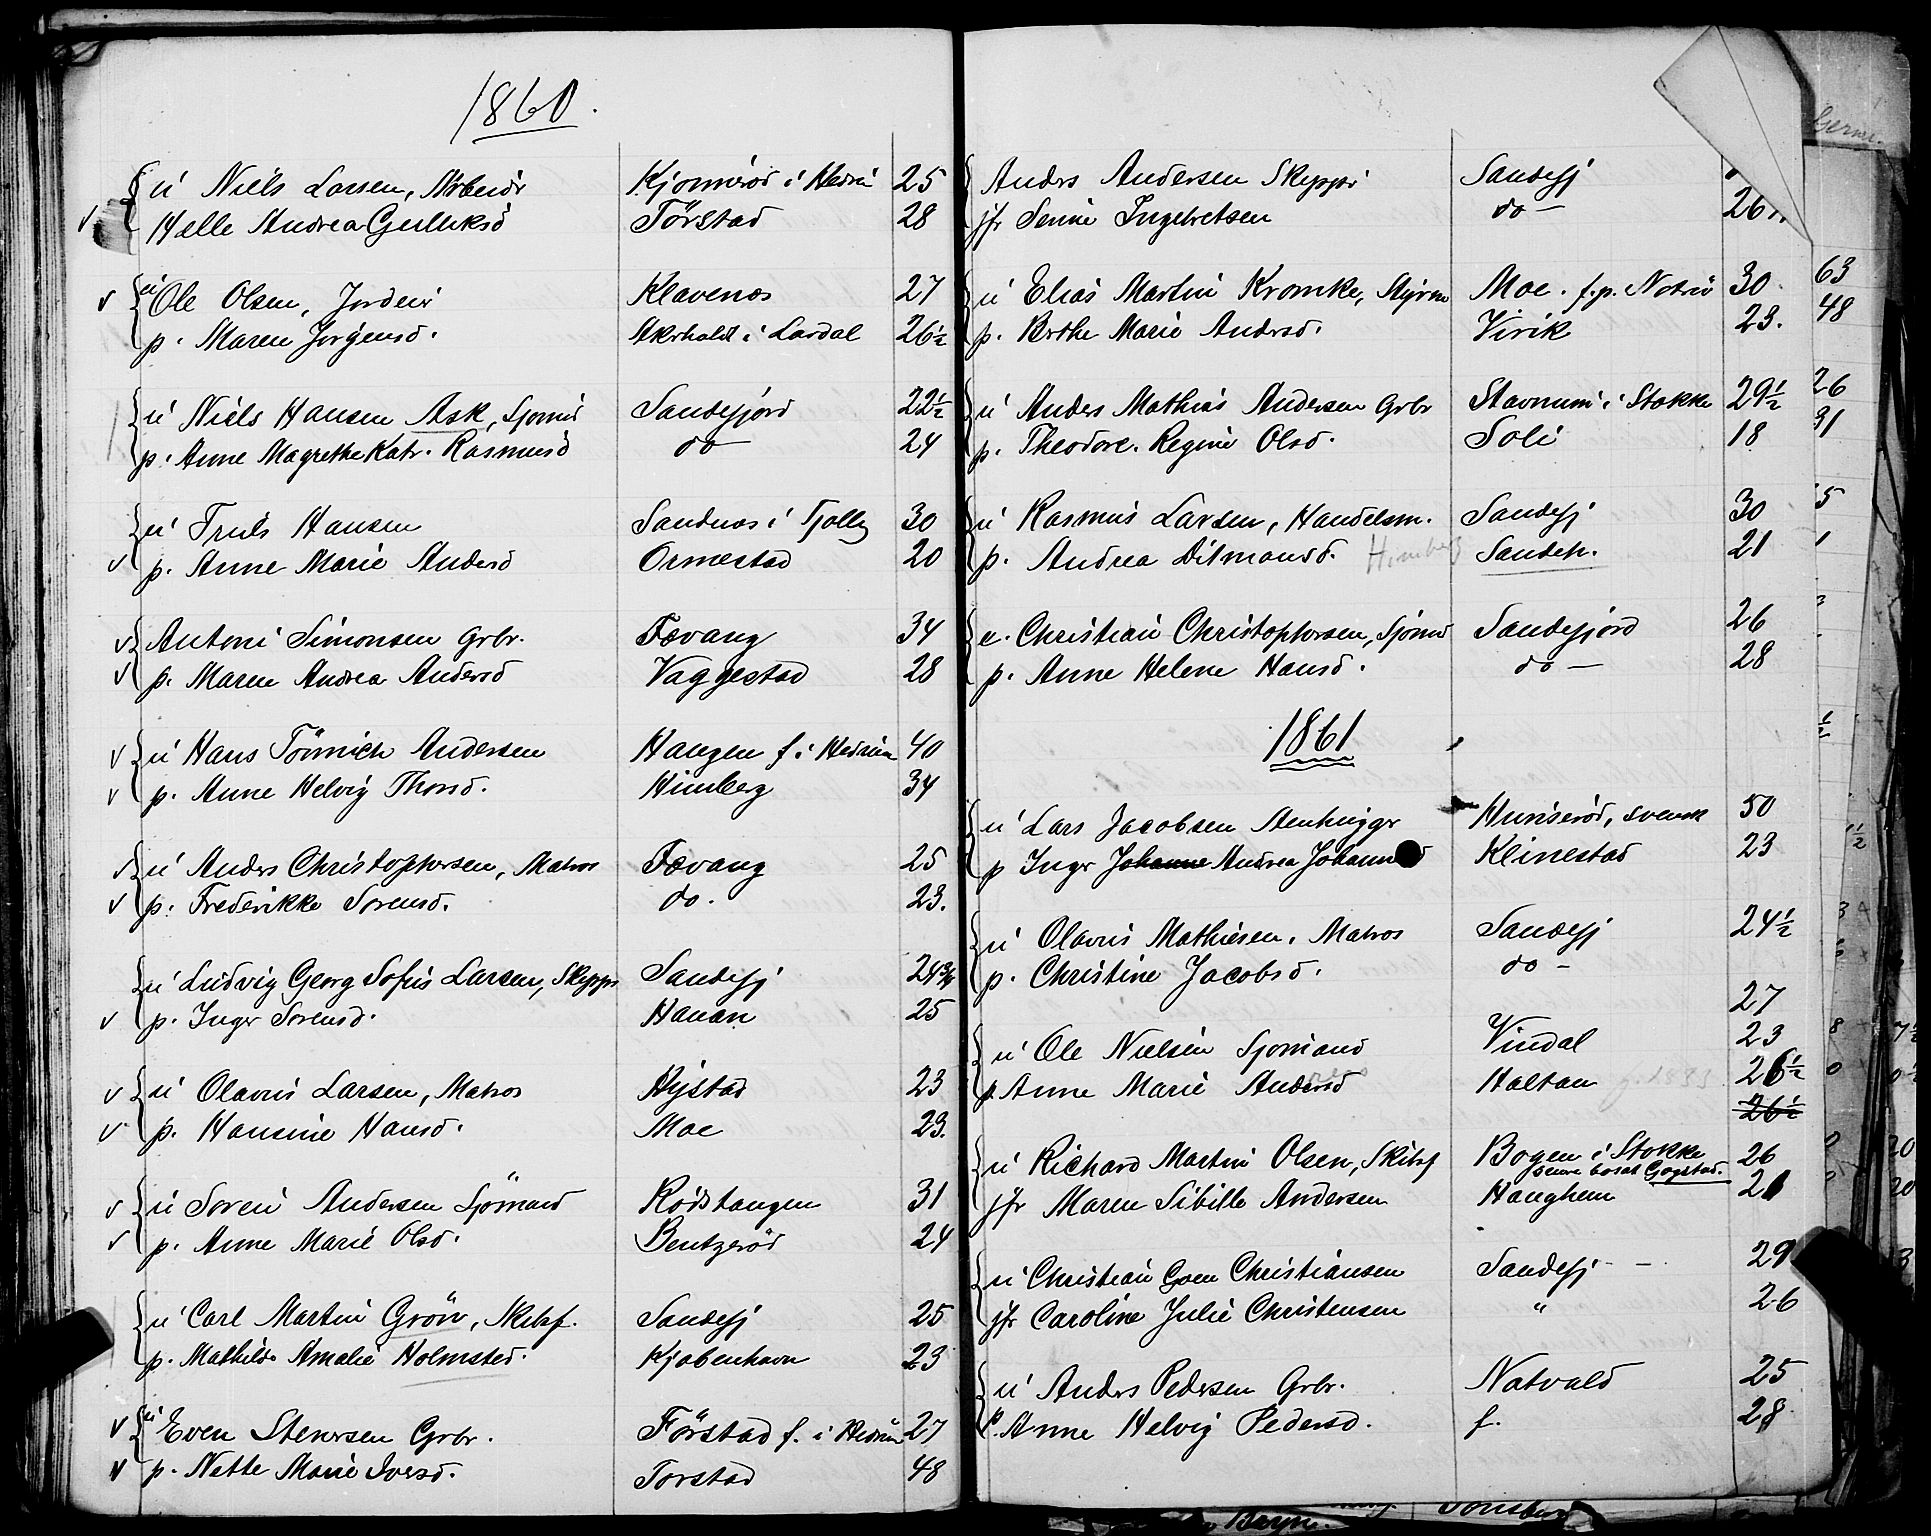 1860.
u' Niels Larsen, Arbeidr Kjonnerød i Hedru 25
Helle Andrea Gulliksd Törstad 28
u' Ole Olsen, Jordeir Klavenes 27
p. Maren Jorgensd. Akerholdt i Lardal 26½
u' Niels Hansen Ask, Sjomd Sandefjord 22½
p. Anne Magrethe Katr. Rasmusd do 24
u' Truls Hansen Sandnes i Tjølling 30
p. Anne Marie Andersd Ormestad 20
Antoni Simonsen Grbr. Fævang 34
p. Maren Andrea Andersd Vaggestad 28
u' Hans Tönnich Andersen Haugen f. i Hedrum 40
p. Anne Helvig Thorsd. Himberg 34
u' Anders Christophersen, Matros Fævang 25
p. Frederikke Sorensd. do. 23.
u' Ludvig Georg Sofus Larsen, Skippr Sandefj 24¾
p. Inger Sorensd. Hauan 25
u' Olavus Larsen, Matros Nystad 23
p. Hansine Hansd. Moe 23.
u' Soren Andersen Sjömand Rödstangen 31
p. Anne Marie Olsd. Bentzerød 24
u' Carl Martin Grön, Skibsf. Sandefj 25
p. Mathilde Amalie Holmsted. Kjøbenhavn 23
u' Even Stenersen Grbr. Förstad f. i Hedrum 27
p. Nette Marie Iversd. Torstad 48
Anders Andersen Skippr Sandefj
jfr Senine Ingebretsen do – 26
u' Elias Martin Kromke, Styrm Moe. f.p. Notrø 30.
p. Brthe Marie Andersd. Virik 23.
u' Anders Mathias Andersen Grbr Stavnum i Stokke 29½
p. Theodore. Regine Olsd. Soli 18
u' Rasmus Larsen, Handelsm. Sandefj 30
p. Andrea Ditmansd. Himberg Sandeh. 21
e. Christian Christophersen, Sjömd Sandefjord 26
p. Anne Helene Hansd. do – 28
1861
u' Lars Jacobsen Stenhugger Hunserød, svensk 50
p Inger Johanne Andrea Johannsd Klinestad 23
u' Olavus Mathiesen, Matros Sandefj 24½
p. Christine Jacobsd. do – 27
u' Ole Nielsen Sjomand Vindal 23
p. Anne Marie Andersd Haltan g. 1833 26½
26½
u' Richard Martin Olsen, Skibsf Bogen i Stokke 26
senere bosat Gogstad.
jfr Maren Sibille Andersen Haughem 21
u' Christian Goen Christiansen Sandefj - - 29
jfr Caroline Julie Christensen " 26
u' Anders Pedersen Grbr. Natvald 25
p. Anne Helvig Pedersd. f. 28
63
48
26
31
5
1